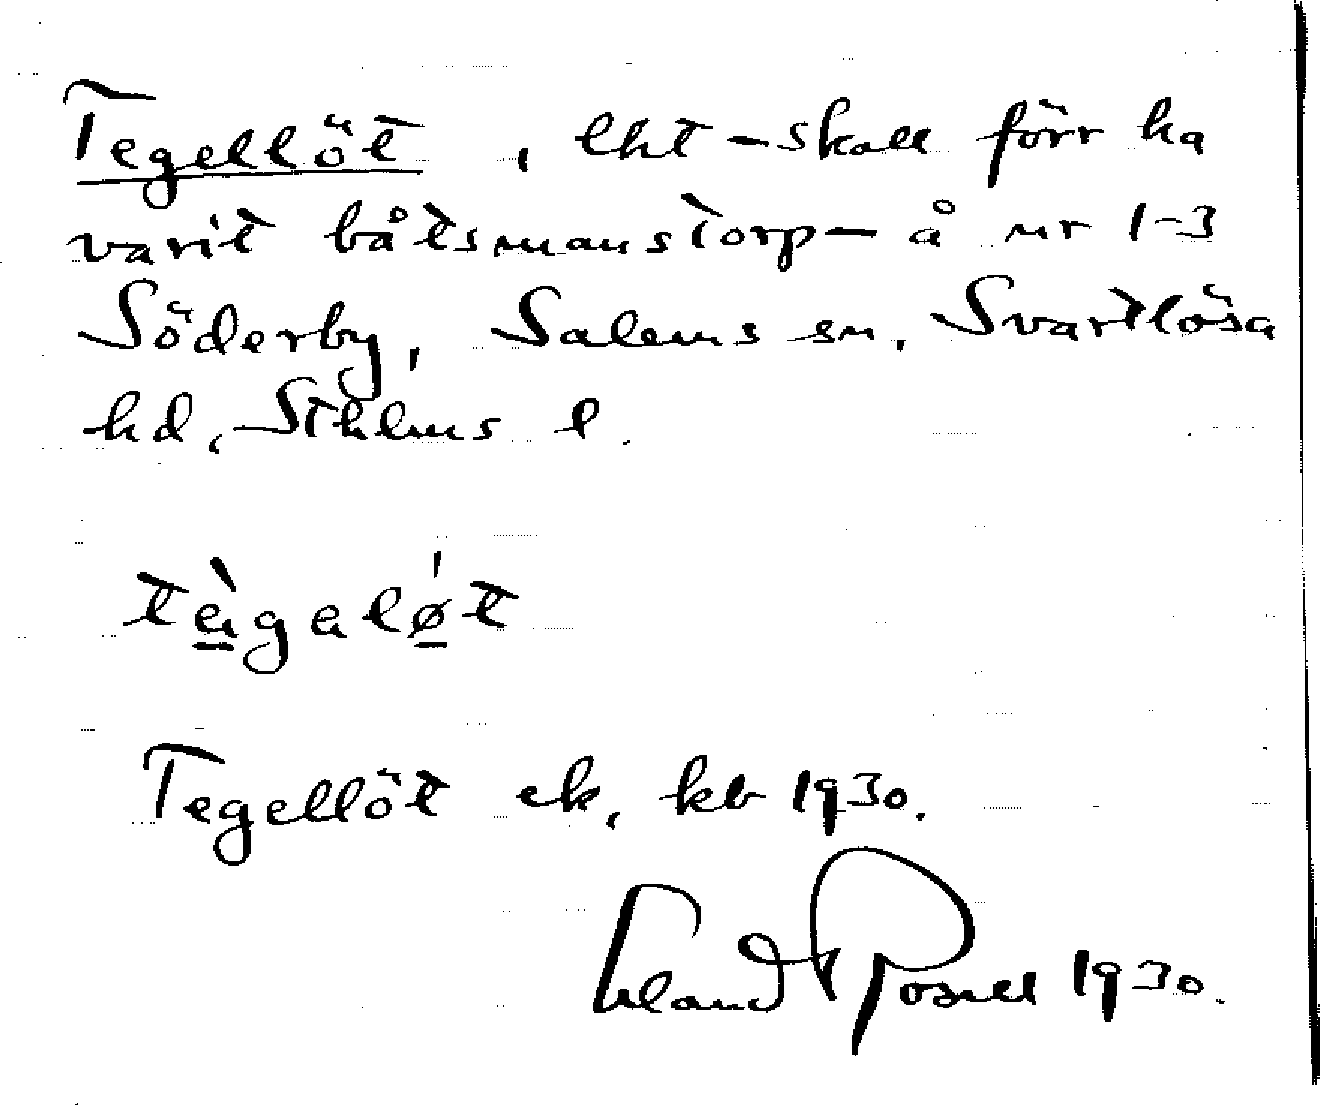 Tegellöt, lht - skall förr ha
varit båtsmanstorp - å nr 1-3
Söderby, Salems sn, Svartlösa
hd, Sthlms l.
tè̱gaḻǿ̱t
Tegellöt ek, kb 1930.
Erland Rosell 1930.